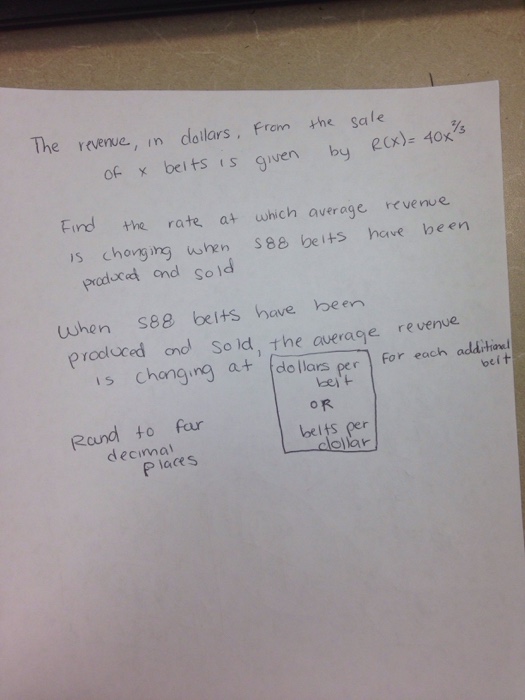 The revenue, in dollars, From the sale
of x belts is given by R(x) = 40x^2/3
Find the rate at which average revenue
is changing when 588 belts have been
produced and sold
When 588 belts have been
produced and sold, the average revenue
is changing at dollars per belt for each additional belt
OR
belts per
dollar
Rand to four
decimal
places